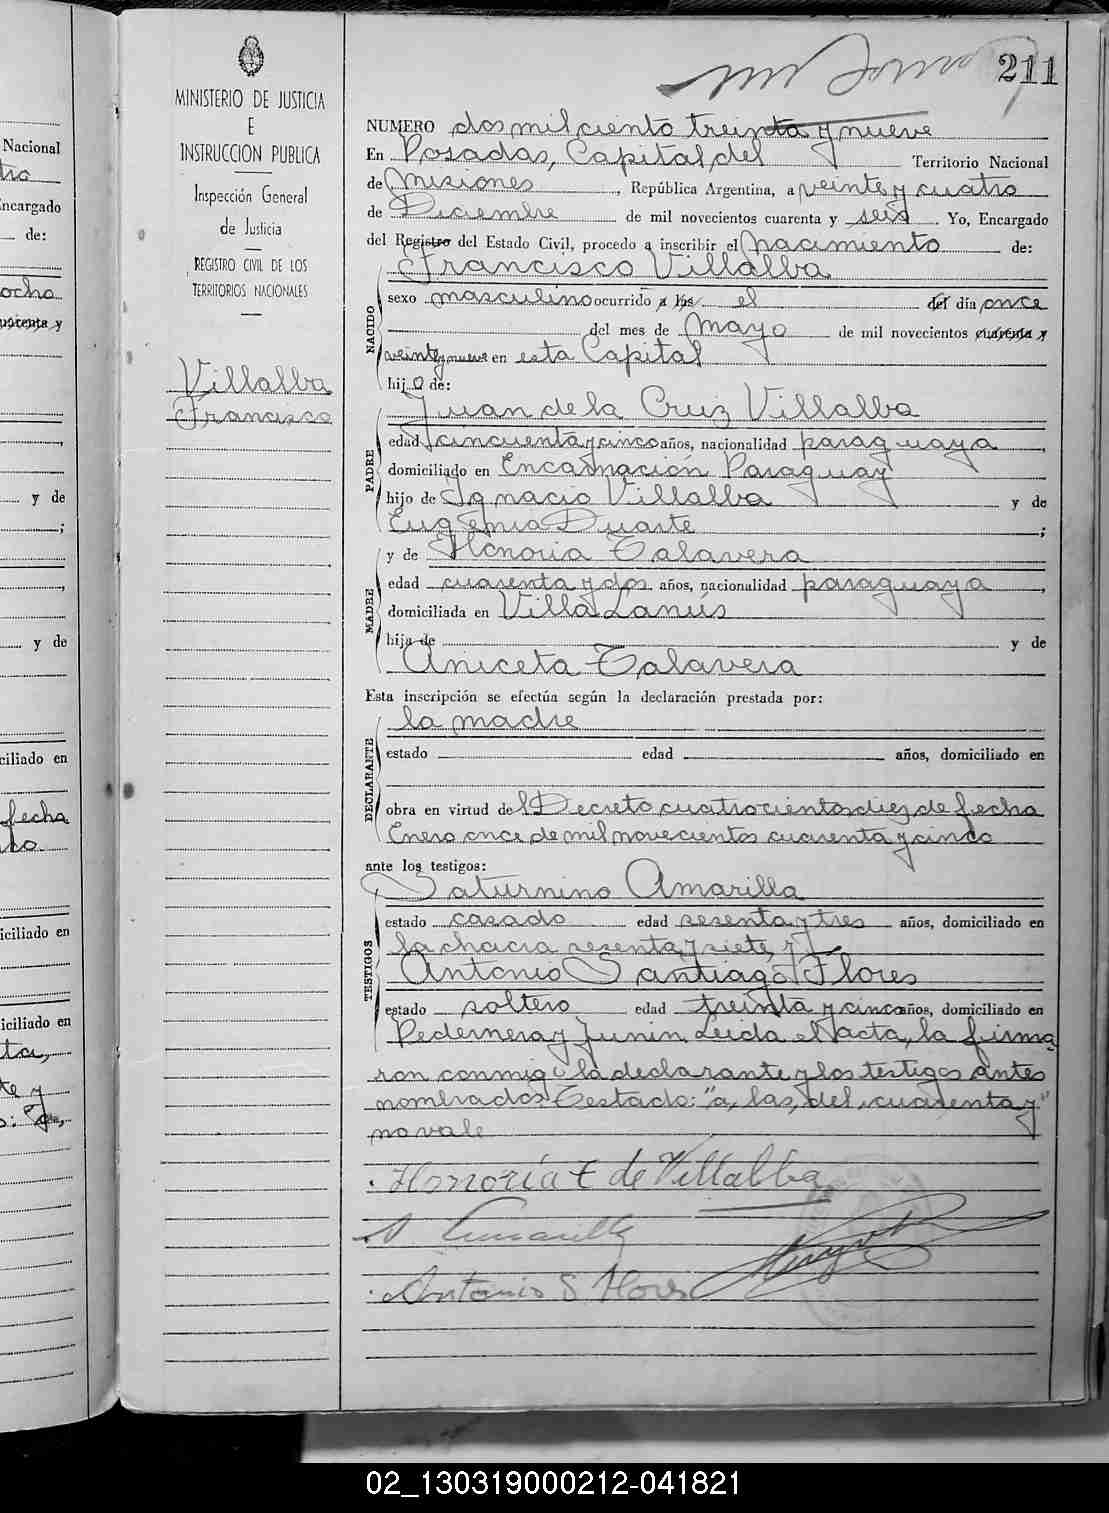 211
MINISTERIO DE JUSTICIA
E
INSTRUCCION PUBLICA
Inspección General
de Justicia
REGISTRO CIVIL DE LOS
TERRITORIOS NACIONALES
Villalba
Francisco
NUMERO dos mil ciento treinta y nueve
En Posadas, Capital del Territorio Nacional
de Misiones, República Argentina, a veinte y cuatro
de Diciembre de mil novecientos cuarenta y seis Yo, Encargado
del Registro del Estado Civil, procedo a inscribir el nacimiento de:
Francisco Villalba
NACIDO
sexo masculino ocurrido a las el del día once
del mes de mayo de mil novecientos cuarenta y
veinte y nueve en esta Capital
hijo de:
Juan de la Cruz Villalba
PADRE
edad cincuenta y cinco años, nacionalidad paraguaya,
domiciliado en Encarnación Paraguay
hijo de Ignacio Villalba y de
Eugenia Duarte;
y de Honoria Talavera
MADRE
edad cuarenta y dos años, nacionalidad paraguaya,
domiciliada en Villa Lanus
hija de y de
Aniceta Talavera
Esta inscripción se efectúa según la declaración prestada por:
la madre
DECLARANTE
estado edad años, domiciliado en
obra en virtud del Decreto cuatrocientos diez de fecha
Enero once de mil novecientos cuarenta y cinco
ante los testigos:
Saturnino Amarilla
TESTIGOS
estado casado edad sesenta y tres años, domiciliado en
la chacra sesenta y siete, y
Antonio Santiago Flores
estado soltero edad treinta y cinco años, domiciliado en
Pedernera y Junin Leida el acta, la firma
ron conmigo la declarante y los testigos antes
nombrados Testado: "a, las, del, cuarenta y"
no vale
Honoria T de Villalba
S Amarilla
Antonio S Flores
Nacional
tro
ncargado
de:
ocho
cuarenta y
y de
;
,
y de
ciliado en
fecha
nco
iciliado en
iciliado en
ta,
te y
02_130319000212-041821